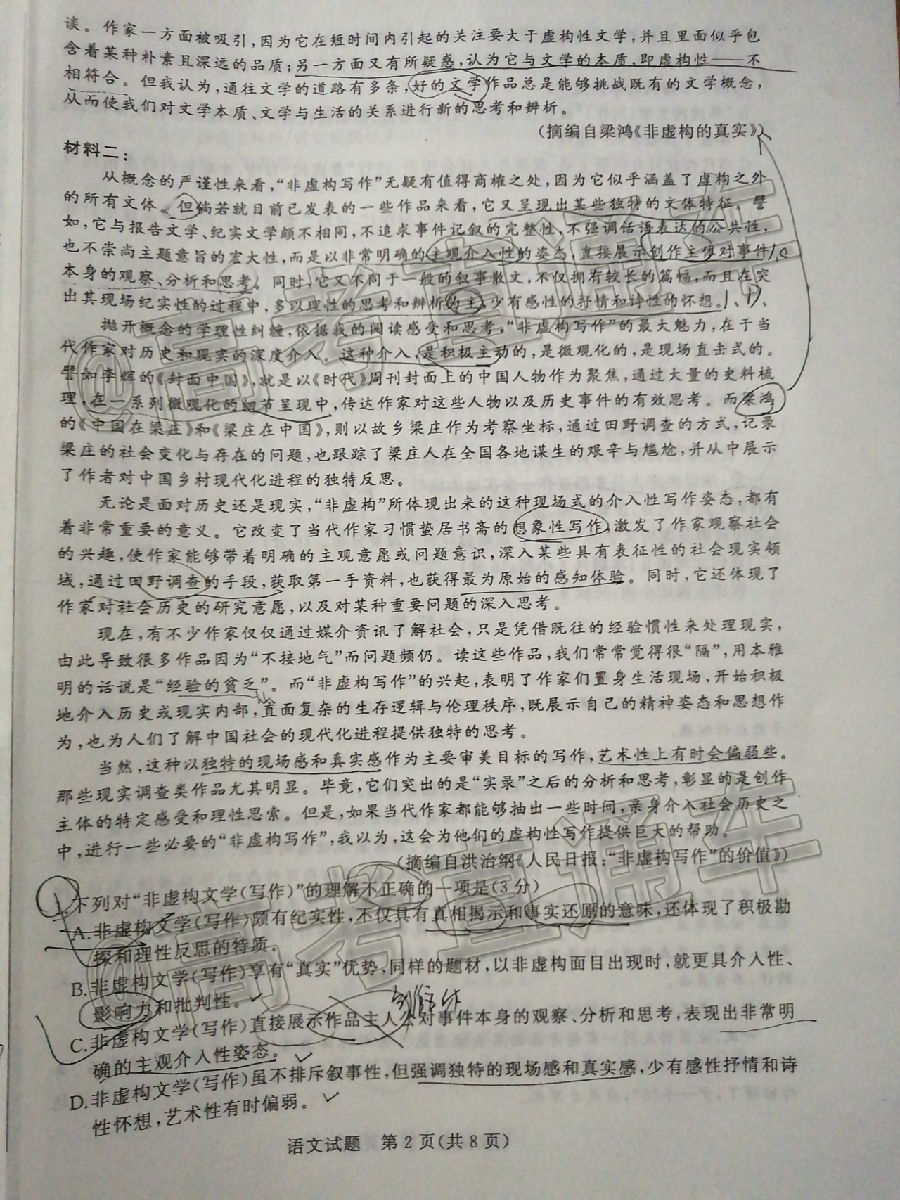 谈。作家一方面被吸引,因为它在短时间内引起的关注要大于虚构性文学,并且里面似乎包
含着某种朴素且深远的品质;另一方面又有所疑惑,认为它与文学的本质,即虚构性——不
相符合。但我认为,通往文学的道路有多条,好的文学作品总是能够挑战既有的文学概念,
从而使我们对文学本质、文学与生活的关系进行新的思考和辨析。
(摘编自梁鸿《非虚构的真实》)
材料二:
从概念的严谨性来看,“非虚构写作”无疑有值得商榷之处,因为它似乎涵盖了虚构之外
的所有文体。但倘若就目前已发表的一些作品来看,它又呈现出某些独特的文体特征。譬
如,它与报告文学、纪实文学颇不相同,不追求事件记叙的完整性,不强调话语表达的公共性,
也不崇尚主题意旨的宏大性,而是以非常明确的主观介入性的姿态,直接展示创作主体对事件
本身的观察、分析和思考。同时,它又不同于一般的叙事散文,不仅拥有较长的篇幅,而且在突
出其现场纪实性的过程中,多以理性的思考和辨析为主,少有感性的抒情和诗性的怀想。
抛开概念的学理性纠缠,依据我的阅读感受和思考,“非虚构写作”的最大魅力,在于当
代作家对历史和现实的深度介入。这种介入,是积极主动的,是微观化的,是现场直击式的。
譬如李辉的《封面中国》,就是以《时代》周刊封面上的中国人物作为聚焦,通过大量的史料梳
理,在一系列微观化的细节呈现中,传达作家对这些人物以及历史事件的有效思考。而梁鸿
的《中国在梁庄》和《梁庄在中国》,则以故乡梁庄作为考察坐标,通过田野调查的方式,记录
梁庄的社会变化与存在的问题,也跟踪了梁庄人在全国各地谋生的艰辛与尴尬,并从中展示
了作者对中国乡村现代化进程的独特反思。
无论是面对历史还是现实,“非虚构”所体现出来的这种现场式的介入性写作姿态,都有
着非常重要的意义。它改变了当代作家习惯蛰居书斋的想象性写作,激发了作家观察社会
的兴趣,使作家能够带着明确的主观意愿或问题意识,深入某些具有表征性的社会现实领
域,通过田野调查的手段,获取第一手资料,也获得最为原始的感知体验。同时,它还体现了
作家对社会历史的研究意愿,以及对某种重要问题的深入思考。
现在,有不少作家仅仅通过媒介资讯了解社会,只是凭借既往的经验惯性来处理现实,
由此导致很多作品因为“不接地气”而问题频仍。读这些作品,我们常常觉得很“隔”,用本雅
明的话说是“经验的贫乏”。而“非虚构写作”的兴起,表明了作家们置身生活现场,开始积极
地介入历史或现实内部,直面复杂的生存逻辑与伦理秩序,既展示自己的精神姿态和思想作
为,也为人们了解中国社会的现代化进程提供独特的思考。
当然,这种以独特的现场感和真实感作为主要审美目标的写作,艺术性上有时会偏弱些。
那些现实调查类作品尤其明显。毕竟,它们突出的是“实录”之后的分析和思考,彰显的是创作
主体的特定感受和理性思索。但是,如果当代作家都能够抽出一些时间,亲身介入社会历史之
中,进行一些必要的“非虚构写作”,我以为,这会为他们的虚构性写作提供巨大的帮助。
(摘编自洪治纲《人民日报:“非虚构写作”的价值》)
1.下列对“非虚构文学(写作)”的理解不正确的一项是(3分)
A.非虚构文学(写作)颇有纪实性,不仅具有真相揭示和事实还原的意味,还体现了积极勘
探和理性反思的特质。
B.非虚构文学(写作)享有“真实”优势,同样的题材,以非虚构面目出现时,就更具介入性、
影响力和批判性。
创作
C.非虚构文学(写作)直接展示作品主人公对事件本身的观察、分析和思考,表现出非常明
确的主观介入性姿态。
D.非虚构文学(写作)虽不排斥叙事性,但强调独特的现场感和真实感,少有感性抒情和诗
性怀想,艺术性有时偏弱。
语文试题 第2页(共8页)
@高考直通车
@高考直通车